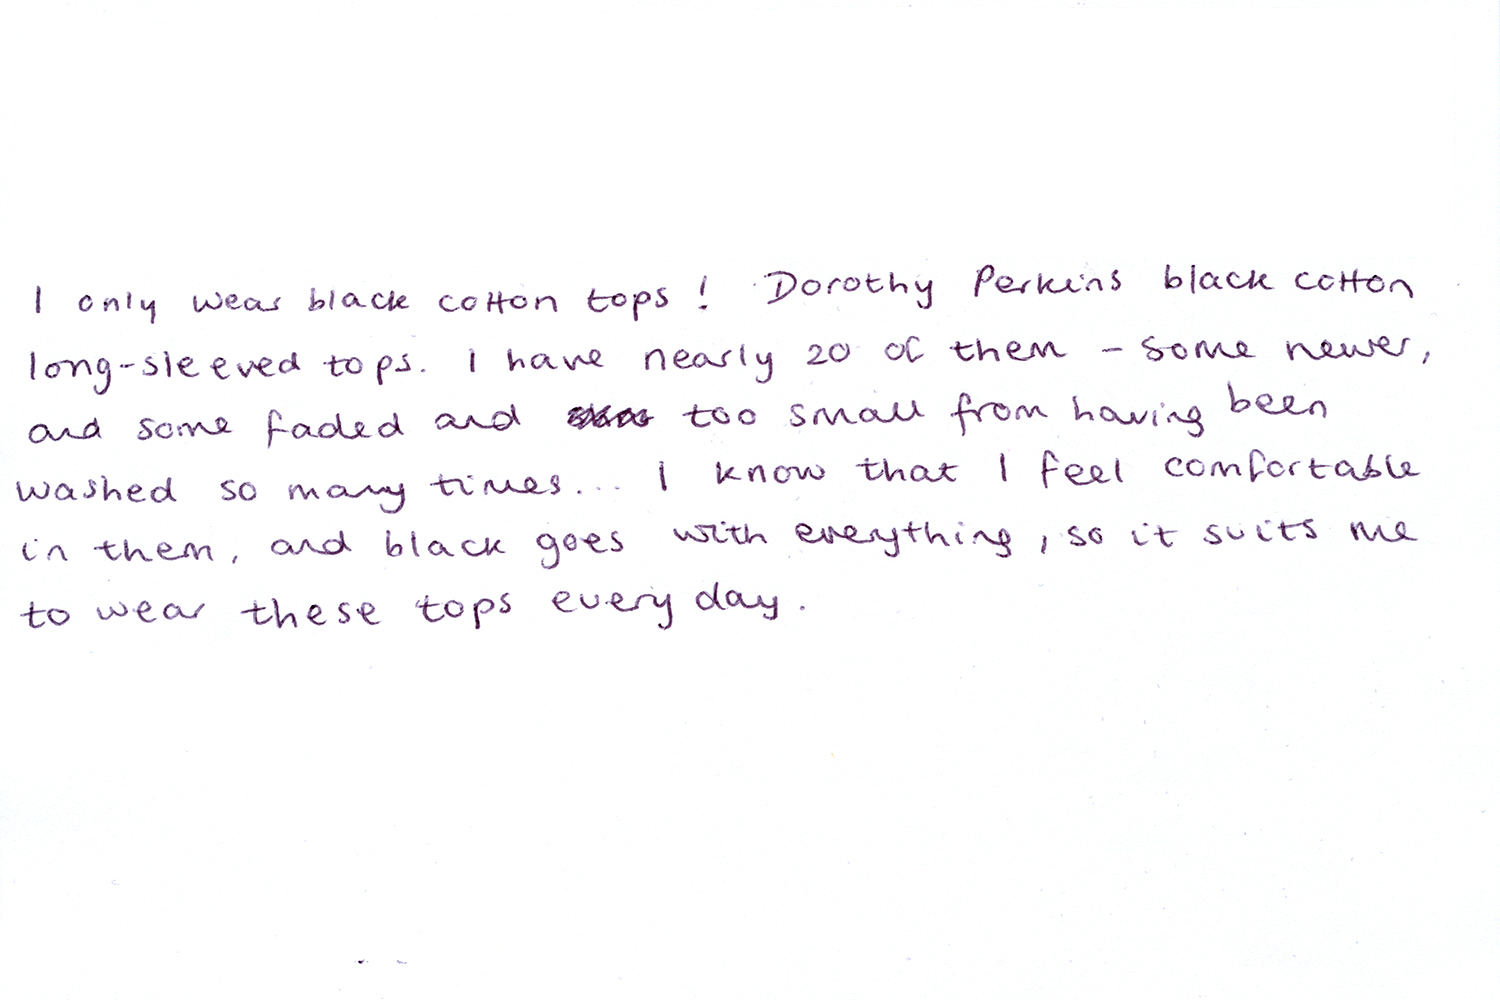 I only wear black cotton tops! Dorothy Perkins black cotton
long-sleeved tops. I have nearly 20 of them - some newer,
and some faded and too small from having been
washed so many times... I know that I feel comfortable
in them, and black goes with everything, so it suits me
to wear these tops every day.